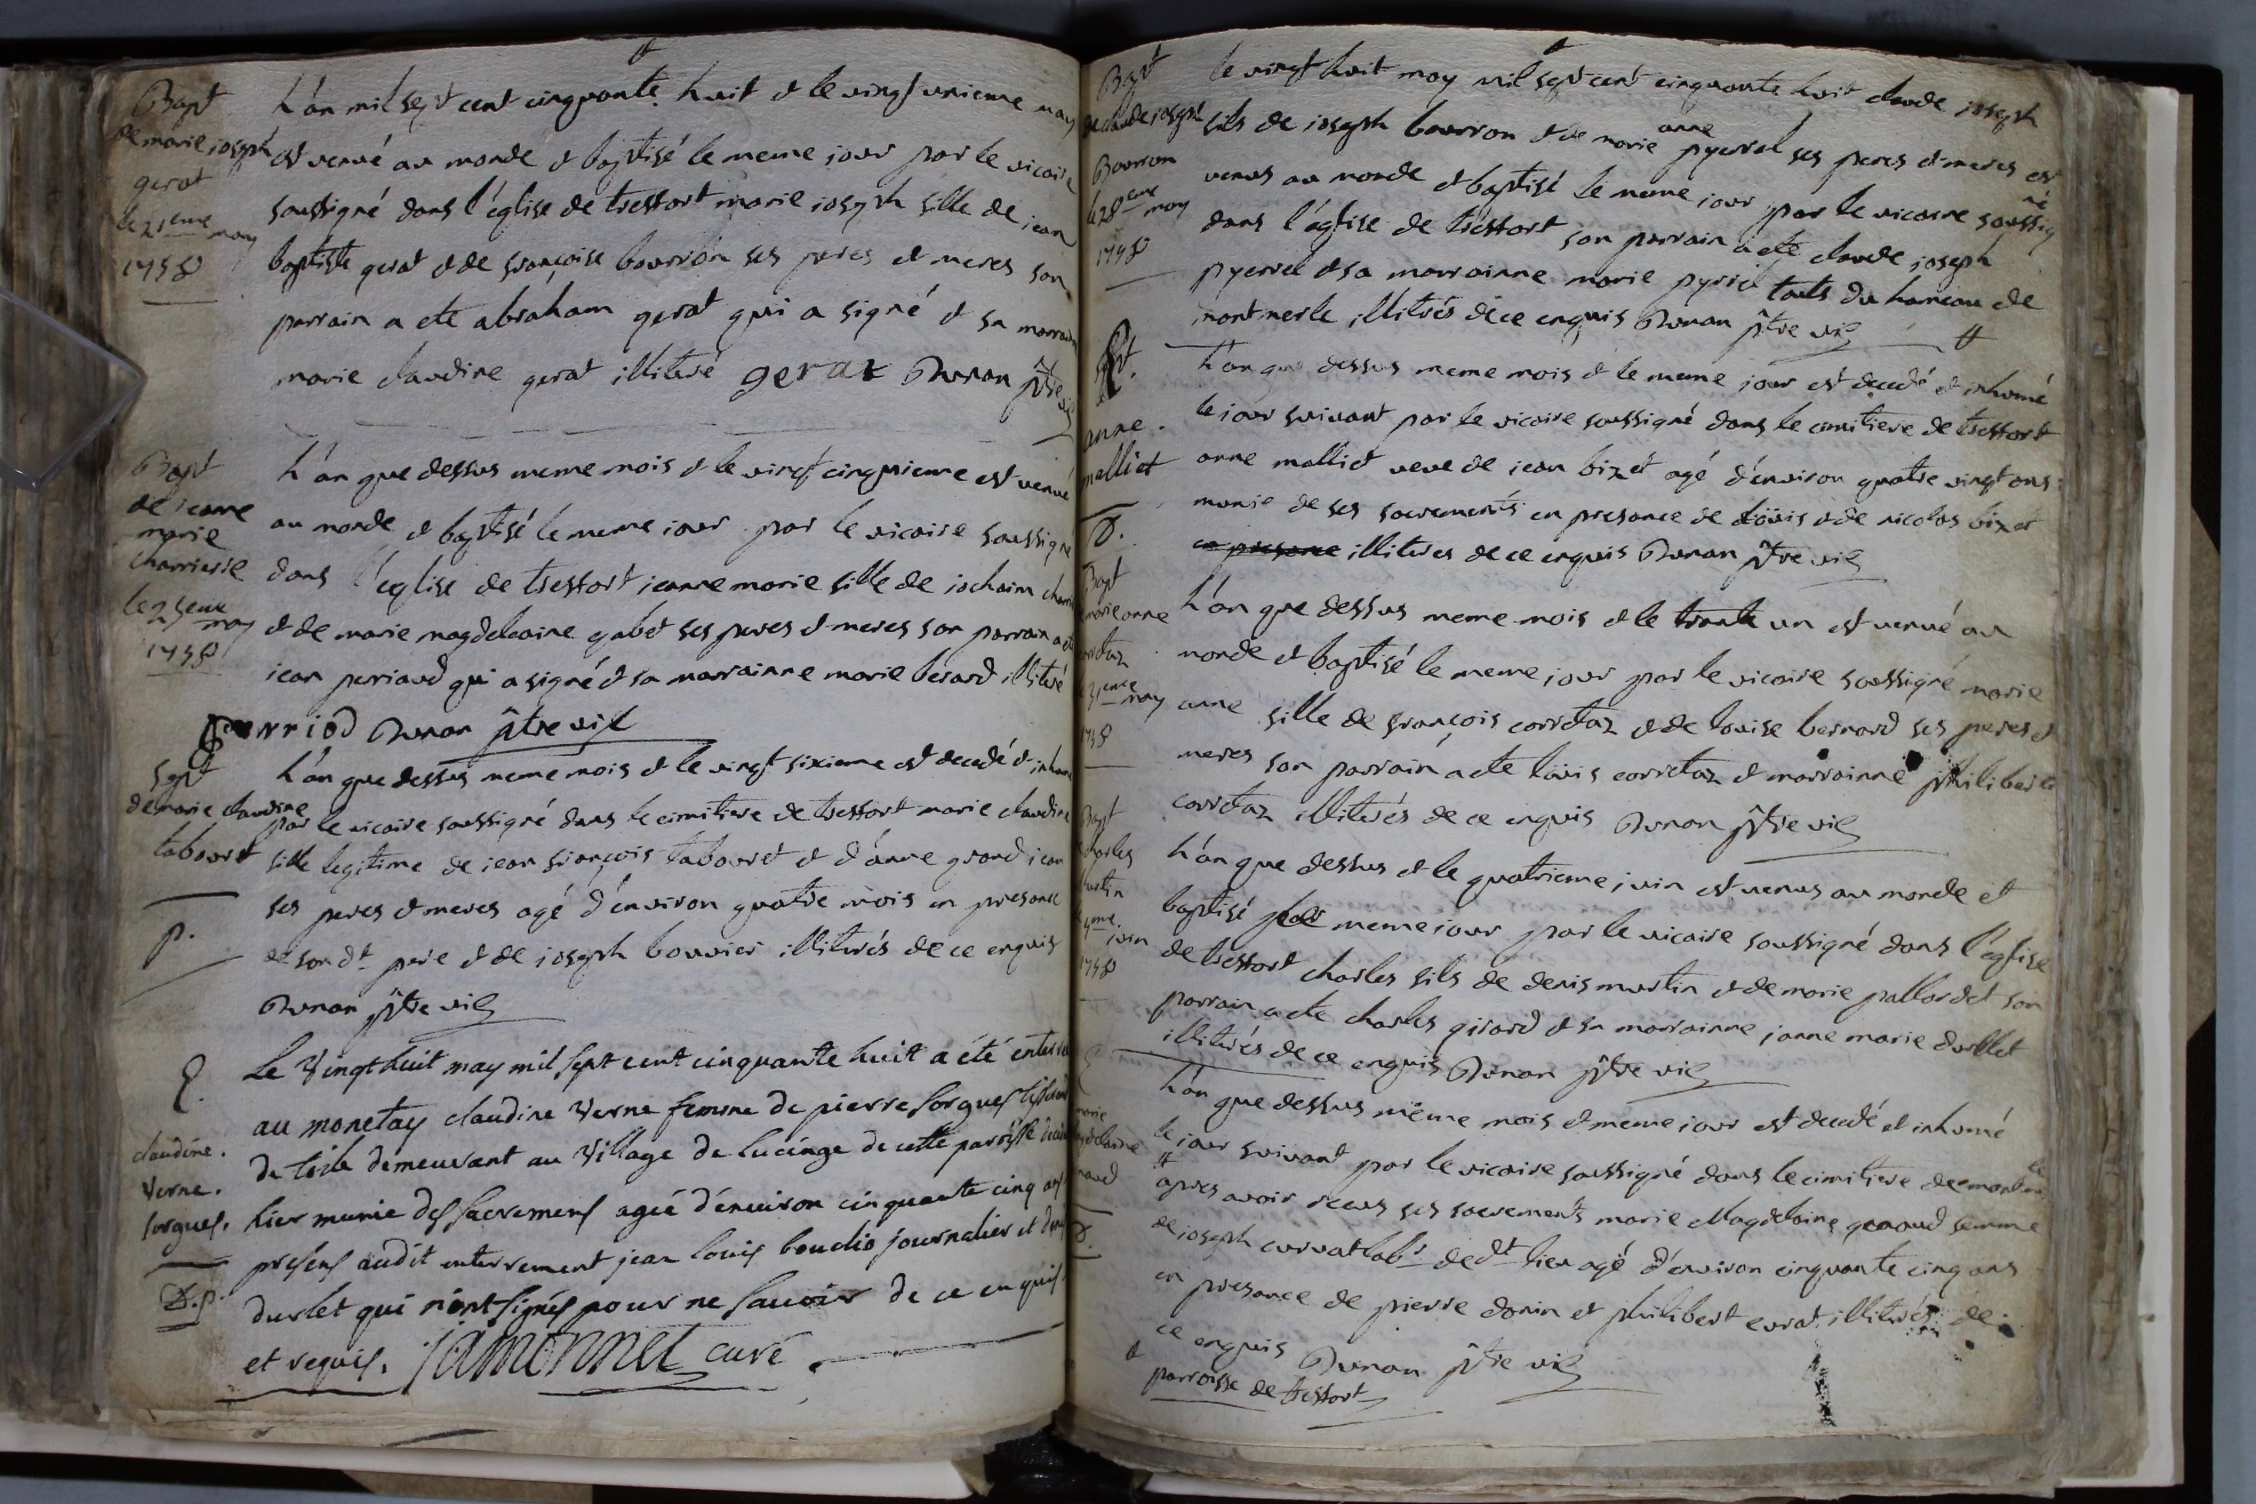 Bapt
de marie joseph
gerat
le 21eme may
1758
L'an mil sept cent cinquante huit et le vingt unieme may
est venué au monde et baptisé le meme jour par le vicaire
soussigné dans l'église de tressort marie joseph fille de jean
baptiste gerat et de françoise bourron ses peres et meres son
parrain a ete abraham gerat qui a signé et sa marrain
marie claudine gerat illiteré gerat Dunan ptre vic
Bapt
de jeanne
marie
charrierre
le 25eme may
1758
L'an que dessus meme mois et le vingt cinquieme est venué
au monde et baptisé le meme jour par le vicaire soussigné
dans l'église de tressort jeanne marie fille de jochaim
et de marie magdelaine gabet ses peres et meres son parrain a ete
jean perriaud qui a signé et sa marrainne marie berard illiteré
perriod Dunan ptre vic
Sept
de marie claudine
tabouret
p.
L'an que dessus meme mois et le vingt sixieme est decedé et inhumé
par le vicaire soussigné dans le cimitiere de tressort marie claudine
fille legitime de jean françois tabouret et d'anne grand jean
ses peres et meres agé d'environ quatre mois en presance
de son dt pere et de joseph bouvier illiterés de ce enquis
Dunan ptre vic
claudine.
Verne.
sorgues.
D.p.
Le Vingt huit may mil sept cent cinquante huit a été enterrée
au monetay claudine Verne femme de pierre sorgues tisserand
de toile demeurant au Village de lucinge de cette paroisse decedée
hier munie des sacremens agée d'environ cinquante cinq ans
presens audit enterrement jean louis bouclio journalier et
durlet qui n'ont signés pour ne savoir de ce enquis
et requis. jamonnet curé
Bapt
de claude joseph
Bourron
le 28eme may
1758
le vingt huit may mil sept cent cinquante huit claude joseph
fils de joseph bourron et de marie anne pyerrel ses peres et meres est
venus au monde et baptisé le meme jour par le vicaire soussigné
dans l'église de tressort son parrain a ete claude joseph
pyerrel et sa marrainne marie pyrrel touts du hameau de
montmerle illiterés de ce enquis Dunan ptre vic
anne.
malliet
D.
L'an que dessus meme mois et le meme jour est decedé et inhumé
le jour suivant par le vicaire soussigné dans le cimitiere de tressort
anne malliet veve de jean bizet agé d'environ quatre vingt ans
munie de ses sacrements en presance de loüis et de nicolas bizet
en presance illiteres de ce enquis Dunan ptre vic
Bapt
marie anne
corretaz
31eme may
1758
L'an que dessus meme mois et le trante un est venué au
monde et baptisé le meme jour par le vicaire soussigné marie
anne fille de françois corretaz et de louise bernard ses peres et
meres son parrain a ete loüis corretaz et marrainne philiberte
corretaz illiterés de ce enquis Dunan ptre vic
Bapt
charles
martin
4eme juin
1758
L'an que dessus et le quatrieme juin est venus au monde et
baptisé le meme jour par le vicaire soussigné dans l'église
de tressort charles fils de denis martin et de marie pallordet son
parrain a ete charles girard et sa marrainne janne marie durllet
illiterés de ce enquis Dunan ptre vic
marie
magdelaine
D.
L'an que dessus même mois et meme jour est decedé et inhumé
le jour suivant par le vicaire soussigné dans le cimitiere de montmerle
apres avoir receus ses sacrements marie Magdelaine genaud femme
de joseph curvat labr dedt lieu agé d'environ cinquante cinq ans
en presance de pierre donin et philibert evrat illiterés de
ce enquis Dunan ptre vic
parroisse de tressort